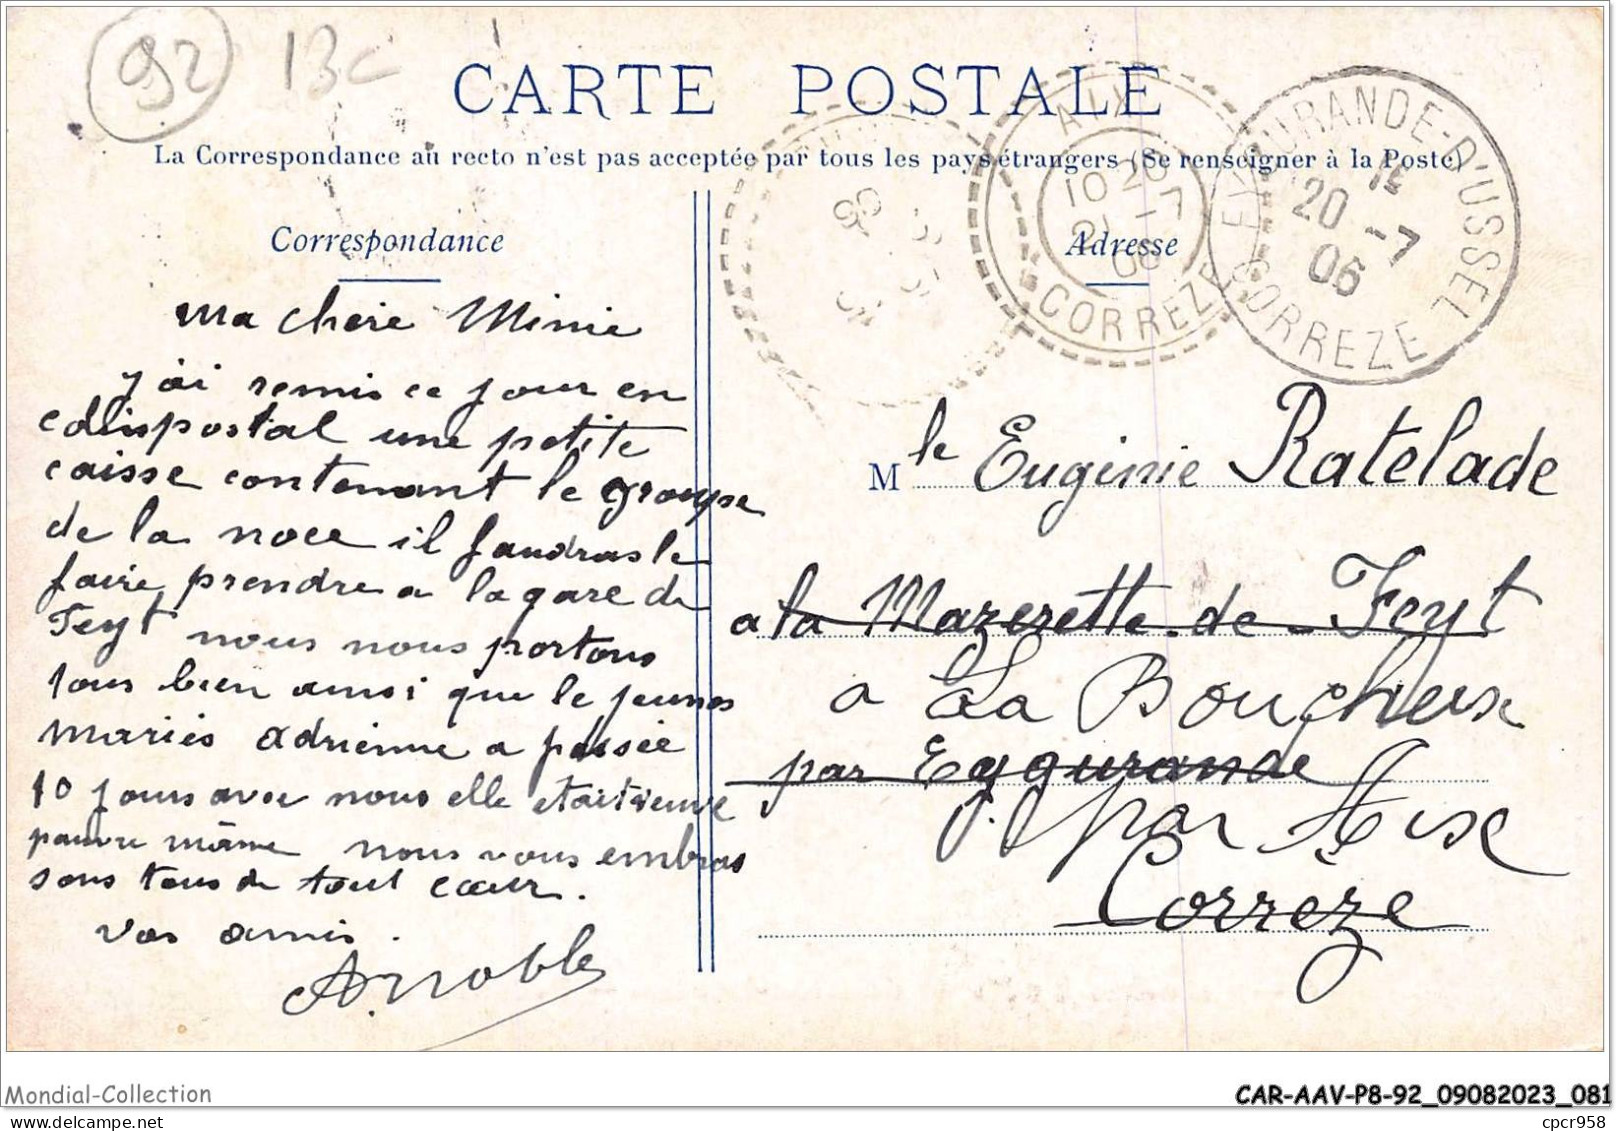 92 13c
CARTE POSTALE
La Correspondance au recto n'est pas acceptée par tous les pays étrangers (Se renseigner à la Poste)
Correspondance
ma chere Minie
j'ai remis ce jour en
colispostal une petite
caisse contenant le groupe
de la noce il faudras le
faire prendre a la gare de
Feyt nous nous portons
tous bien ainsi que le jeunes
mariés adrienne a passée
10 jours avec nous elle etait
pauvre mâme nous vous embras
sons tous de tout cœur.
vos amis.
A. Noble
Adresse
AIX
10 20
21 -7
06
CORREZE
EYGURANDE-D'USSEL
1E
20 -7
06
CORREZE
Mlle Eugénie Ratelade
a la Mazerette-de-Feyt
a La Boucheix
par Eygurande
par Aix
Corrèze
Mondial-Collection
CAR-AAV-P8-92_09082023_081
cpcr958